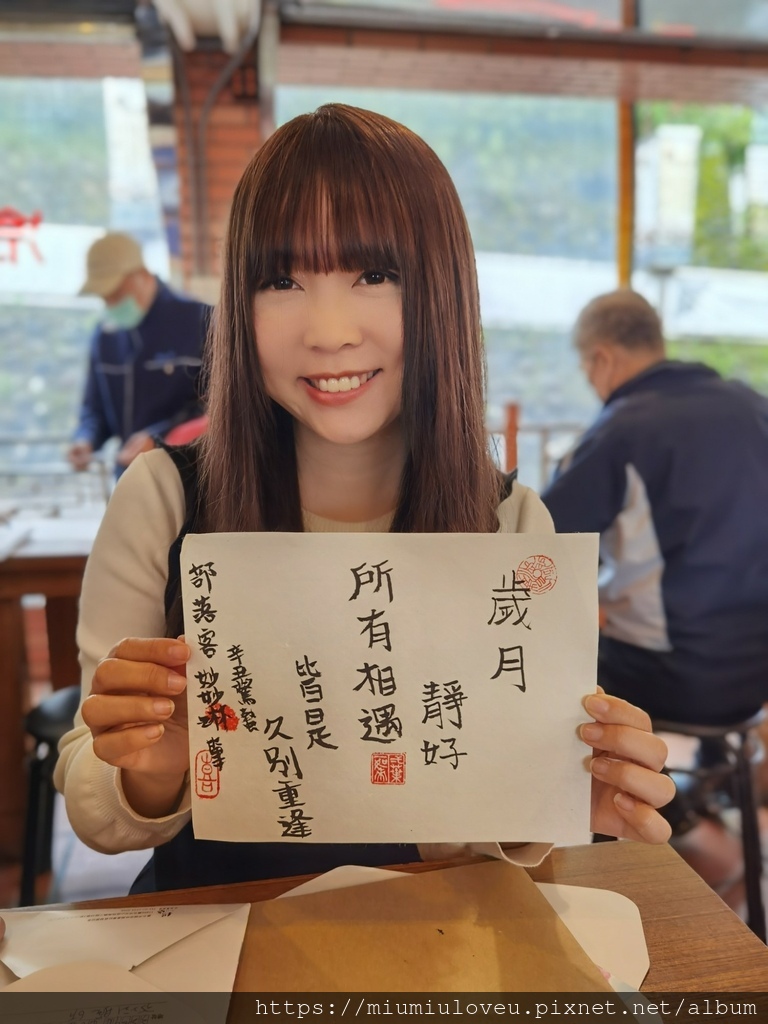 歲月
靜好
所有相遇
皆是
久別重逢
辛丑驚蟄
部落客 妙妙琳
https://miumiuloveu.pixnet.net/album